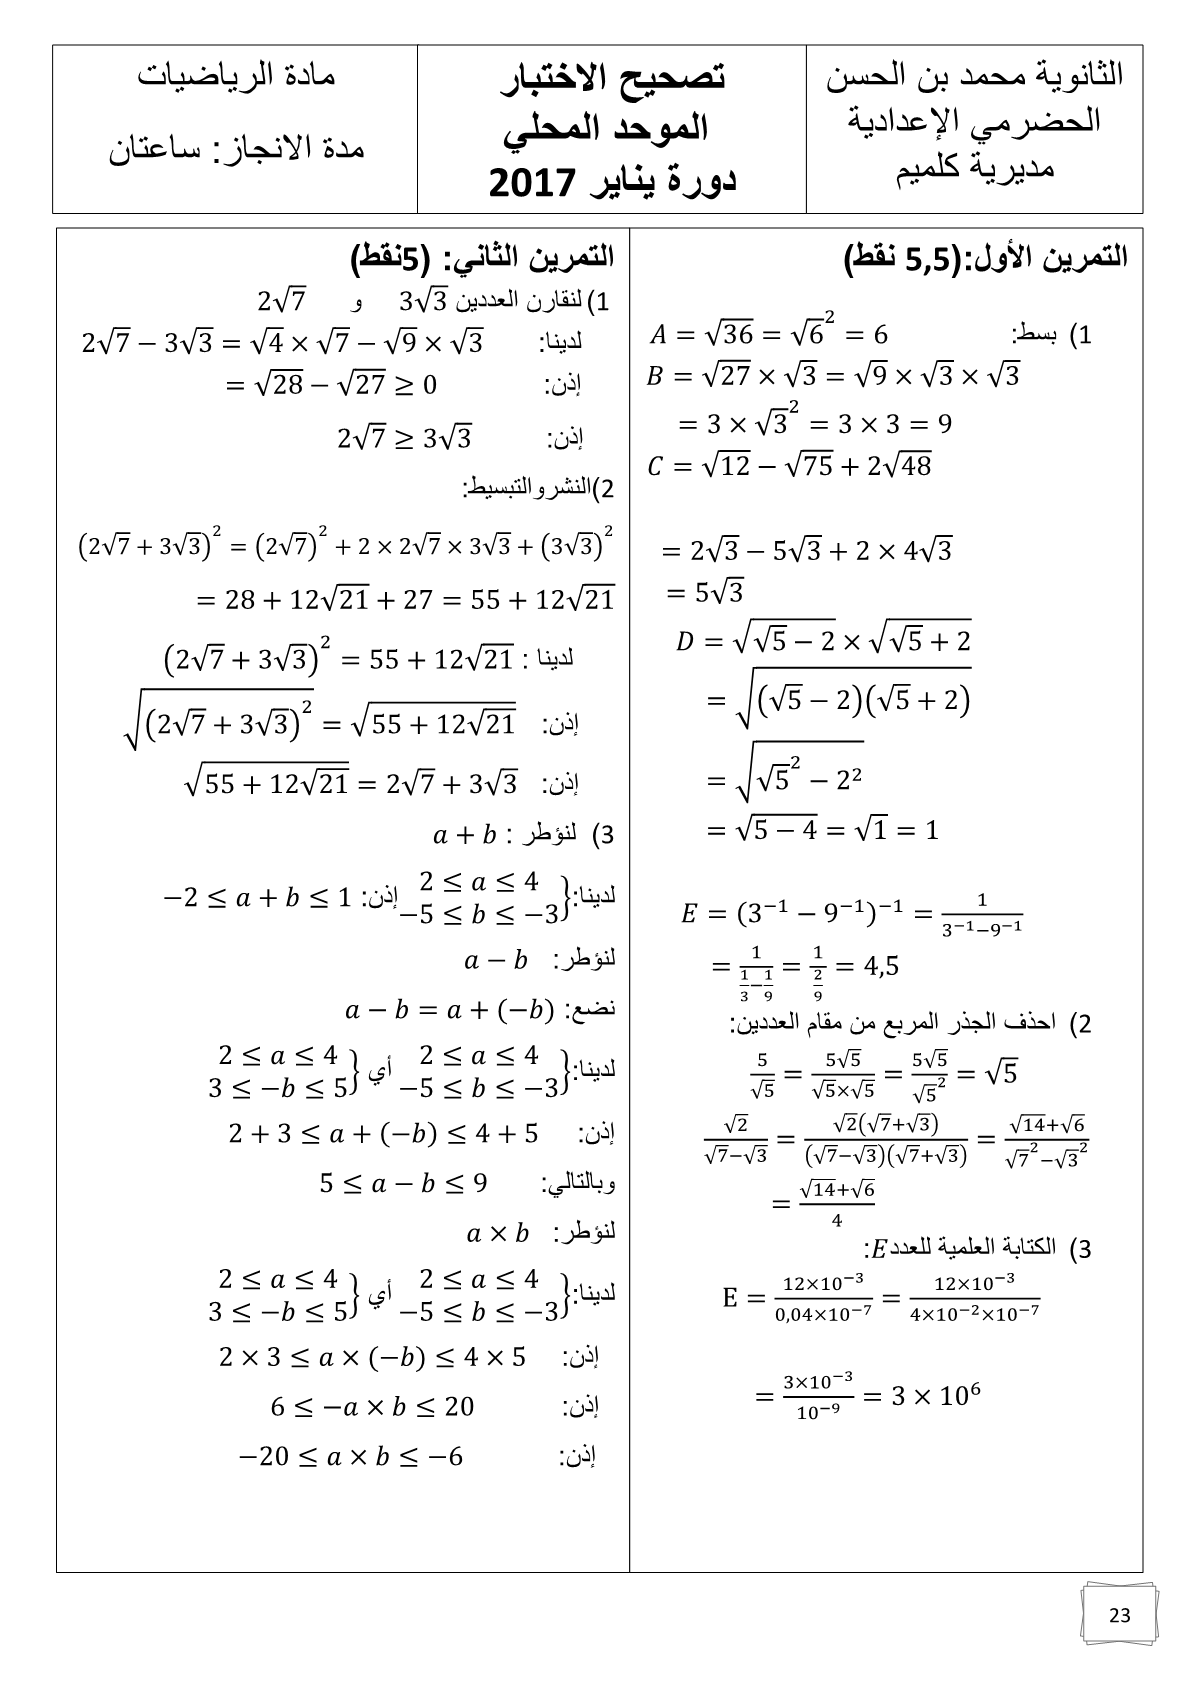 الثانوية محمد بن الحسن
الحضرمي الإعدادية
مديرية كلميم
تصحيح الاختبار
الموحد المحلي
دورة يناير 2017
مادة الرياضيات
مدة الانجاز: ساعتان
التمرين الأول:(5,5 نقط)
1) بسط: A = √36 = √6² = 6
B = √27 × √3 = √9 × √3 × √3
= 3 × √3² = 3 × 3 = 9
C = √12 − √75 + 2√48
= 2√3 − 5√3 + 2 × 4√3
= 5√3
D = √(√5 − 2) × √(√5 + 2)
= √((√5 − 2)(√5 + 2))
= √(√5² − 2²)
= √(5 − 4) = √1 = 1
E = (3⁻¹ − 9⁻¹)⁻¹ = 1/(3⁻¹−9⁻¹)
= 1/(1/3 − 1/9) = 1/(2/9) = 4,5
2) احذف الجذر المربع من مقام العددين:
5/√5 = 5√5/(√5×√5) = 5√5/√5² = √5
√2/(√7−√3) = √2(√7+√3)/((√7−√3)(√7+√3)) = (√14+√6)/(√7²−√3²)
= (√14+√6)/4
3) الكتابة العلمية للعددE:
E = 12×10⁻³/(0,04×10⁻⁷) = 12×10⁻³/(4×10⁻²×10⁻⁷)
= 3×10⁻³/10⁻⁹ = 3 × 10⁶
التمرين الثاني: (5نقط)
1) لنقارن العددين 3√3 و 2√7
لدينا: 2√7 − 3√3 = √4 × √7 − √9 × √3
إذن: = √28 − √27 ≥ 0
إذن: 2√7 ≥ 3√3
2)النشروالتبسيط:
(2√7 + 3√3)² = (2√7)² + 2 × 2√7 × 3√3 + (3√3)²
= 28 + 12√21 + 27 = 55 + 12√21
لدينا : (2√7 + 3√3)² = 55 + 12√21
إذن: √((2√7 + 3√3)²) = √(55 + 12√21)
إذن: √(55 + 12√21) = 2√7 + 3√3
3) لنؤطر : a + b
لدينا: 2 ≤ a ≤ 4 } −5 ≤ b ≤ −3 إذن: −2 ≤ a + b ≤ 1
لنؤطر: a − b
نضع: a − b = a + (−b)
لدينا: 2 ≤ a ≤ 4 } −5 ≤ b ≤ −3 أي 2 ≤ a ≤ 4 } 3 ≤ −b ≤ 5
إذن: 2 + 3 ≤ a + (−b) ≤ 4 + 5
وبالتالي: 5 ≤ a − b ≤ 9
لنؤطر: a × b
لدينا: 2 ≤ a ≤ 4 } −5 ≤ b ≤ −3 أي 2 ≤ a ≤ 4 } 3 ≤ −b ≤ 5
إذن: 2 × 3 ≤ a × (−b) ≤ 4 × 5
إذن: 6 ≤ −a × b ≤ 20
إذن: −20 ≤ a × b ≤ −6
23